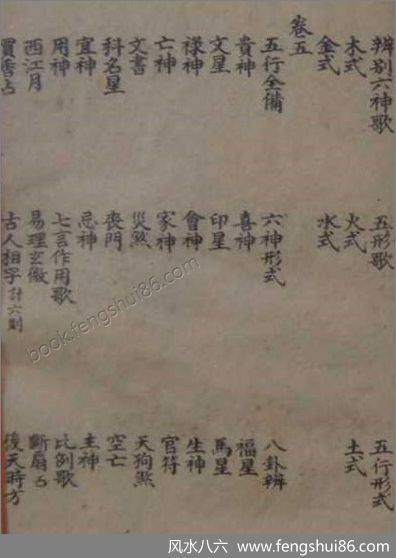 辨別六神歌　五形歌　五行形式
木式　火式　土式
金式　水式
卷五
五行全備　六神形式　八卦辨
貴神　喜神　福星
文星　印星　馬星
祿神　會神　生神
亡神　家神　官符
文書　災煞　天狗煞
科名星　喪門　空亡
宜神　忌神　主神
用神　七言作用歌　比例歌
西江月　易理玄微　斷扇占
買香占　古人相字計六則　後天時方
book.fengshui86.com
风水八六 www.fengshui86.com